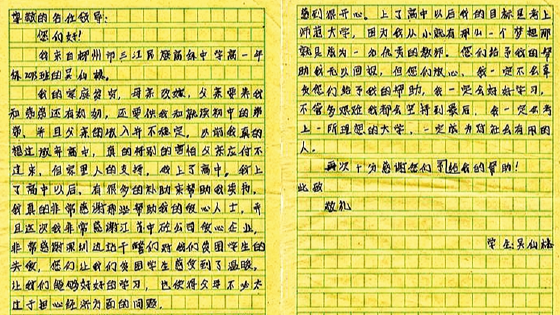 尊敬的各位领导:
您们好!
我来自柳州市三江民族高级中学高一年
级 班的吴仙
我的家庭贫穷,母亲改嫁,父亲要养我
和爸爸还有奶奶,还要供我和就读初中的弟
弟,并且父亲的收入并不稳定。以前我真的
想过放弃高中,真的特别的害怕父亲应付不
过来,但家里人的支持,我上了高中。我上
了高中以后,有很多的补助来帮助我装扮,
我真的非常感谢那些帮助我的爱心人士,并
且这次我非常感谢江 公司爱心企业,
非常感谢 们对我们贫困学生的
关爱,您们让我们贫困学生感受到了温暖,
让我们能够好好的学习,也使得父母不必太
过于担心经济方面的问题。
感到很开心。上了高中以后我的目标是考上
师范大学,因为我从小就有那么一个梦想那
就是成为一力优秀的教师。您们给予我的帮
助我无以回报,但您们放心,我一定不会辜
负您们给予我的帮助,我一定会好好学习,
不管多艰难我都会坚持到最后,我一定会考
上一所理想的大学,一定成为对社会有用的
人。
再次十分感谢您们给我的帮助!
此致
敬礼
学生:吴仙